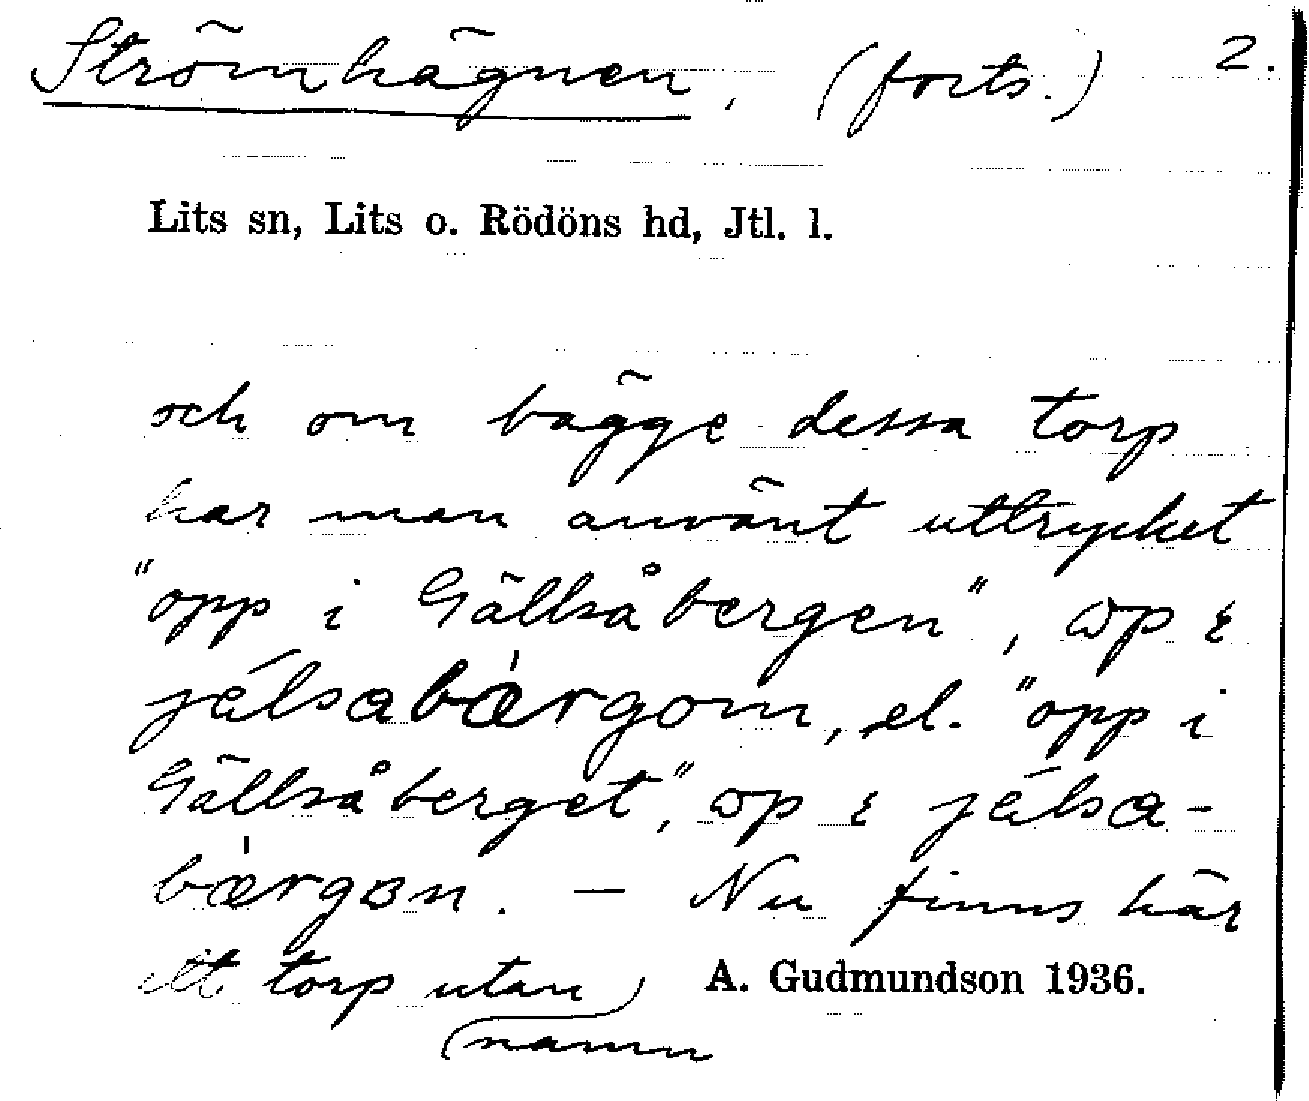 Strömhägnen, (forts.) 2.
Lits sn, Lits o. Rödöns hd, Jtl. l.
och om bägge dessa torp
har man använt uttrycket
"opp i Gällsåbergen",
"opp i
Gällsåberget",
– Nu finns här
ett torp utan
namn
A. Gudmundson 1936.